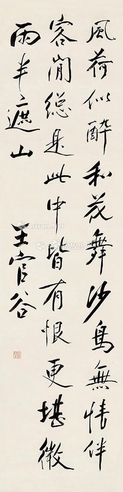 風荷似醉和花舞沙鳥無情伴
客閒總是此中皆有恨更堪微
雨半遮山
王官谷